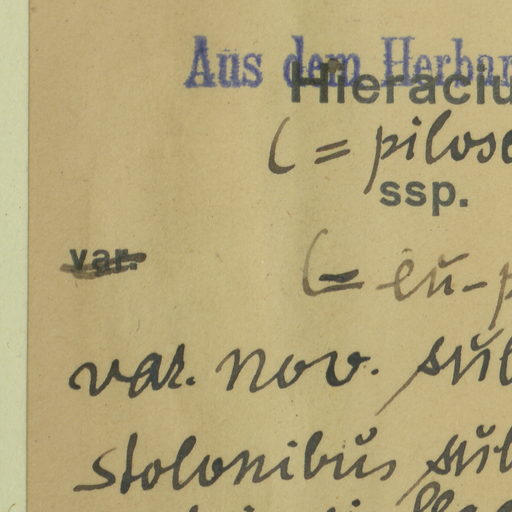 Aus dem Herbar
Hieraciu
(= pilose
ssp.
var.
(= eŭ-p
var. nov. sŭb
stolonibŭs sŭb